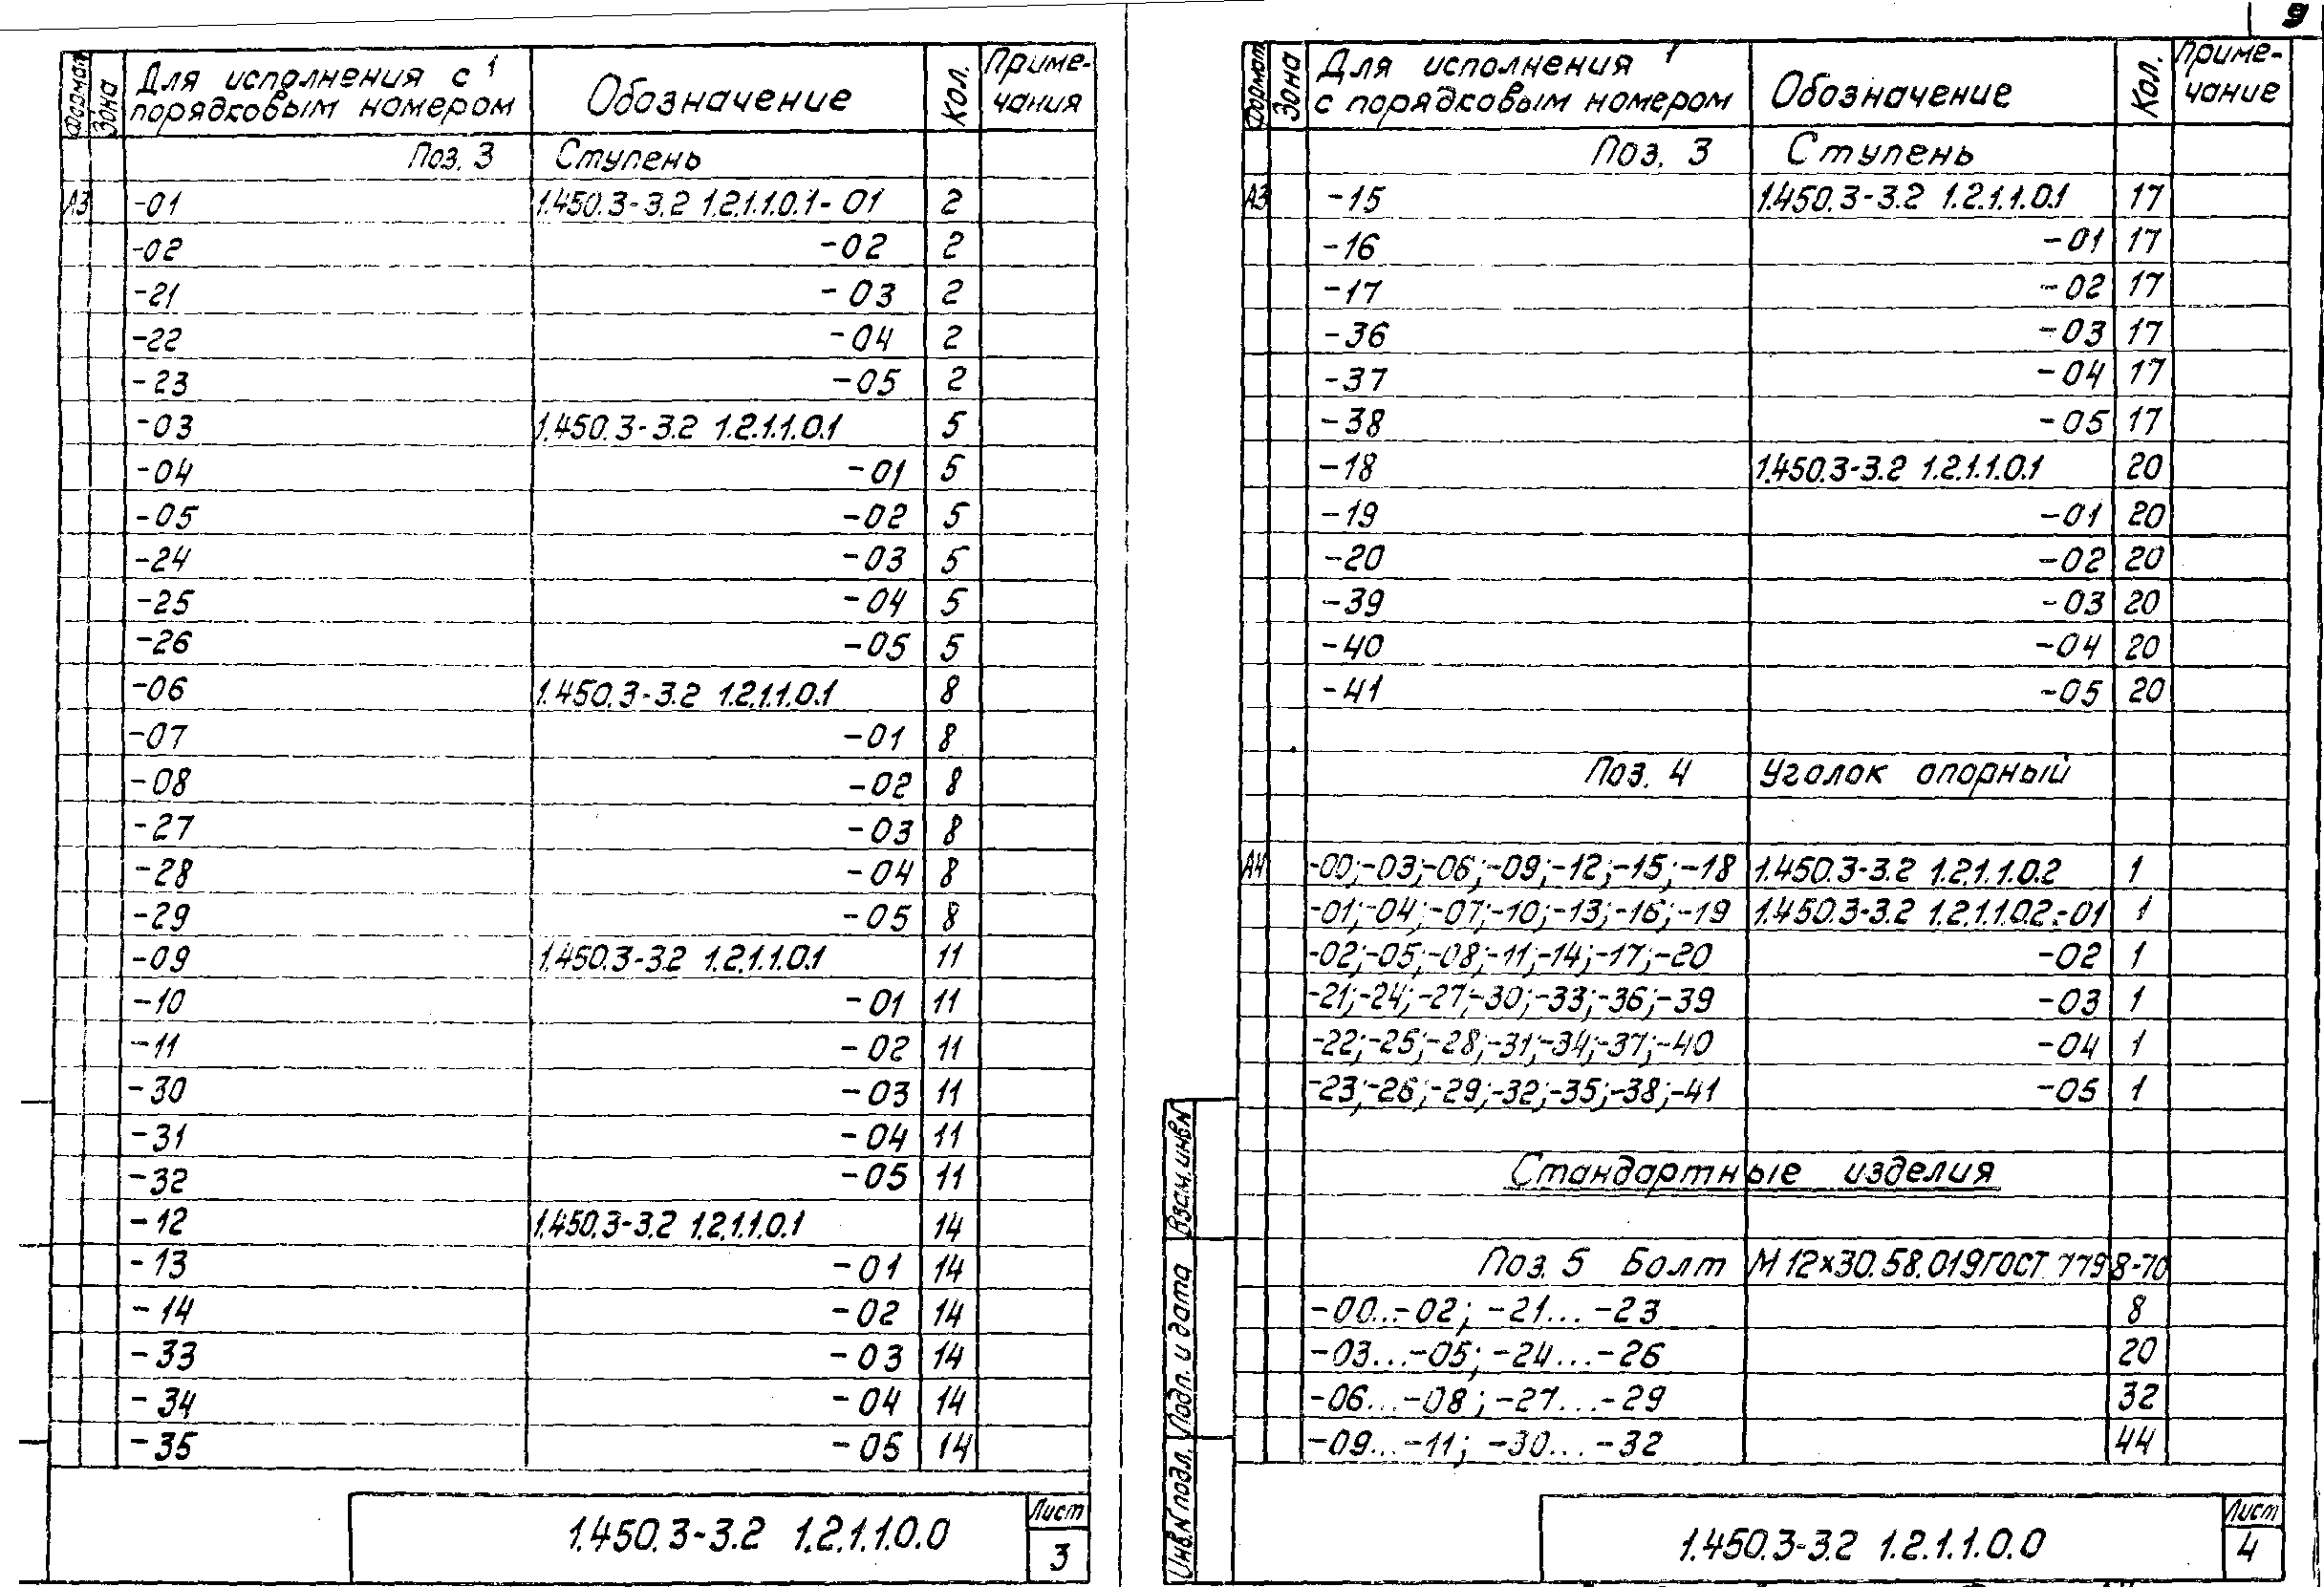 9
Формат Зона Для исполнения с 1 порядковым номером Обозначение Кол. Приме-чания
Поз. 3 Ступень
А3 -01 1.450.3-3.2 1.2.1.1.0.1-01 2
-02 -02 2
-21 -03 2
-22 -04 2
-23 -05 2
-03 1.450.3-3.2 1.2.1.1.0.1 5
-04 -01 5
-05 -02 5
-24 -03 5
-25 -04 5
-26 -05 5
-06 1.450.3-3.2 1.2.1.1.0.1 8
-07 -01 8
-08 -02 8
-27 -03 8
-28 -04 8
-29 -05 8
-09 1.450.3-3.2 1.2.1.1.0.1 11
-10 -01 11
-11 -02 11
-30 -03 11
-31 -04 11
-32 -05 11
-12 1.450.3-3.2 1.2.1.1.0.1 14
-13 -01 14
-14 -02 14
-33 -03 14
-34 -04 14
-35 -05 14
1.450.3-3.2 1.2.1.1.0.0
Лист
3
Формат Зона Для исполнения 1 с порядковым номером Обозначение Кол. Приме-чание
Поз. 3 Ступень
А3 -15 1.450.3-3.2 1.2.1.1.0.1 17
-16 -01 17
-17 -02 17
-36 -03 17
-37 -04 17
-38 -05 17
-18 1.450.3-3.2 1.2.1.1.0.1 20
-19 -01 20
-20 -02 20
-39 -03 20
-40 -04 20
-41 -05 20
Поз. 4 Уголок опорный
А4 -00;-03;-06;-09;-12;-15;-18 1.450.3-3.2 1.2.1.1.0.2 1
-01;-04;-07;-10;-13;-16;-19 1.450.3-3.2 1.2.1.1.0.2-01 1
-02;-05;-08;-11;-14;-17;-20 -02 1
-21;-24;-27;-30;-33;-36;-39 -03 1
-22;-25;-28;-31;-34;-37;-40 -04 1
-23;-26;-29;-32;-35;-38;-41 -05 1
Стандартные изделия
Поз. 5 Болт М12×30.58.019 ГОСТ 7798-70
-00...-02; -21...-23 8
-03...-05; -24...-26 20
-06...-08; -27...-29 32
-09...-11; -30...-32 44
Инв.N подл. Подп. и дата Взам.инв.N
1.450.3-3.2 1.2.1.1.0.0
Лист
4